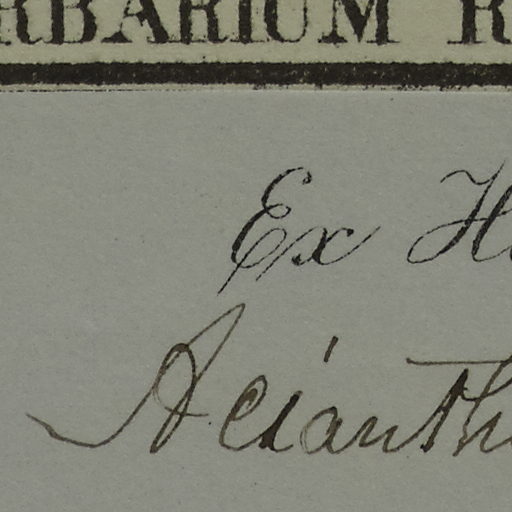 RBARIUM R
Ex H
Acianth